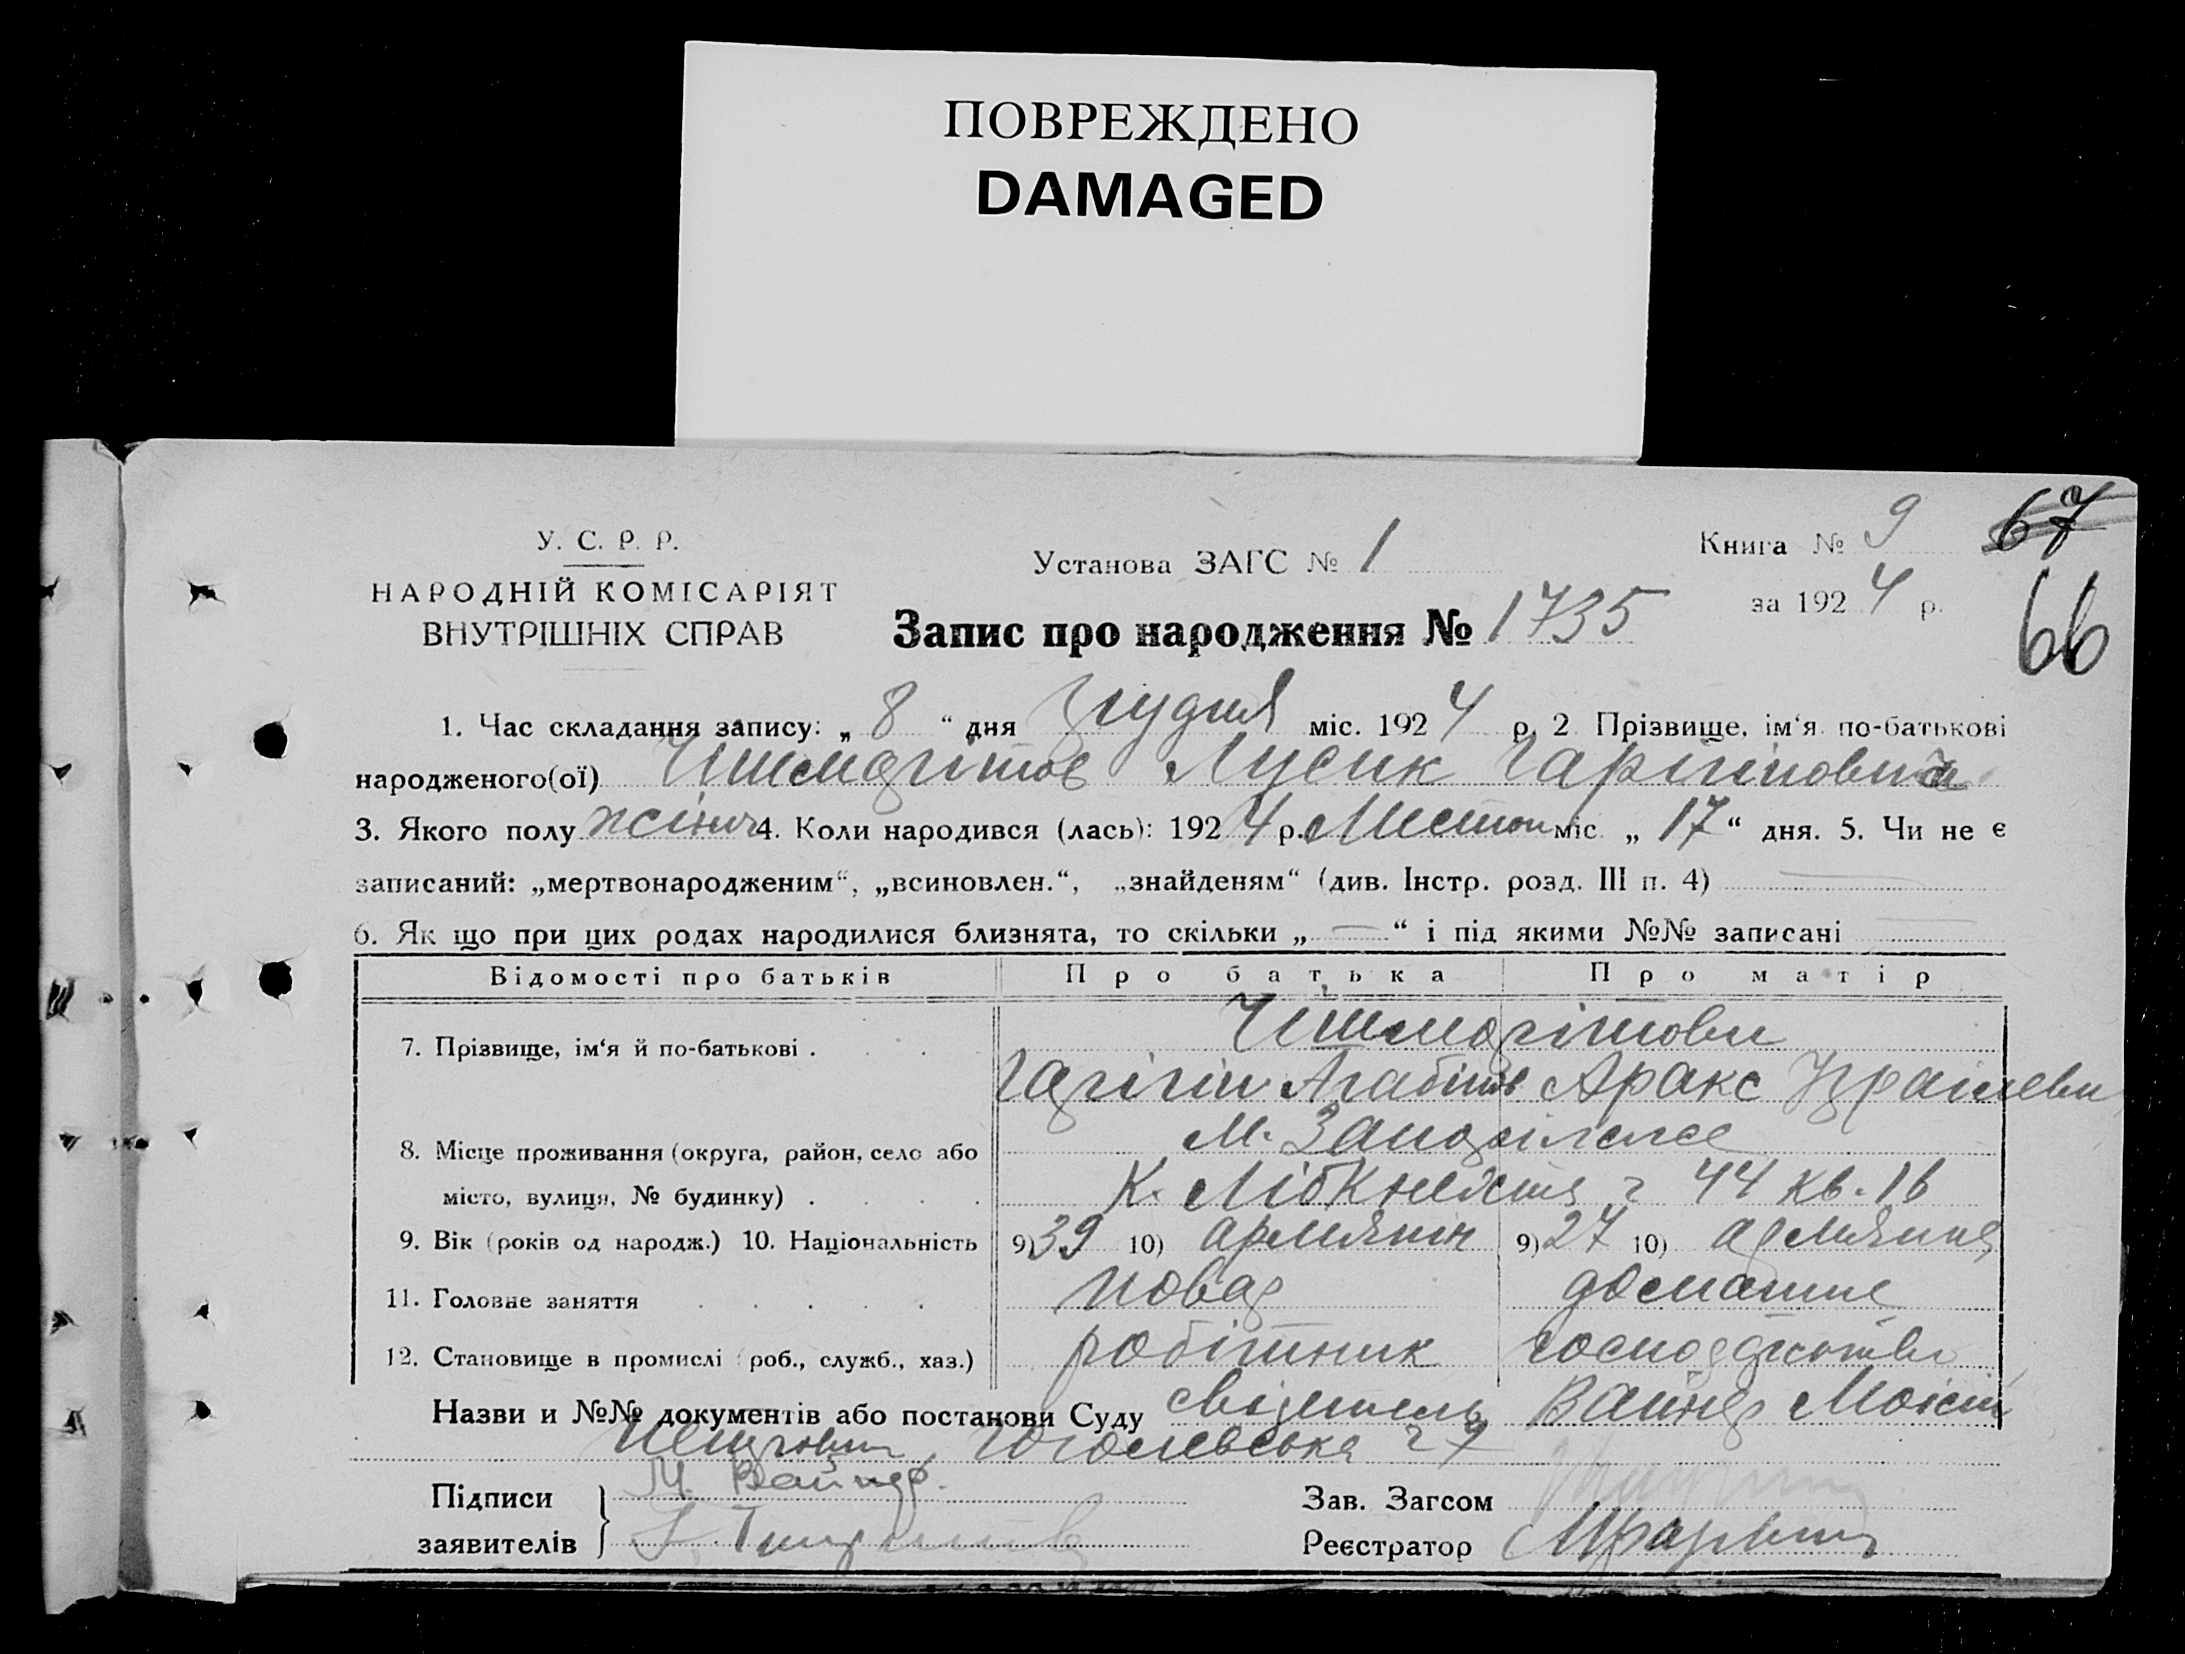 ПОВРЕЖДЕНО
DAMAGED
У. С. Р. Р.
НАРОДНІЙ КОМІСАРІЯТ
ВНУТРІШНІХ СПРАВ
Установа ЗАГС № 1
Книга № 9
67
за 1924 р.
66
Запис про народження № 1735
1. Час складання запису: „ 8 “ дня Грудня міс. 1924 р. 2 Прізвище, ім‘я по-батькові
народженого(ої) Лусик
3. Якого полу жіноч 4. Коли народився (лась): 1924 р. Листоп міс „ 17 “ дня. 5. Чи не є
записаний: „мертвонародженим“, „всиновлен.“, „знайденям“ (див. Інстр. розд. III п. 4)
6. Як що при цих родах народилися близнята, то скільки „ — “ і під якими №№ записані —
Відомості про батьків Про батька Про матір
7. Прізвище, ім‘я й по-батькові . . .
Аракс
8. Місце проживання (округа, район, село або м.
місто, вулиця, № будинку) . . . . К. Лібкнехта 44 кв. 16
9. Вік (років од народж.) 10. Національність 9) 39 10) армянін 9) 27 10) армянка
11. Головне заняття . . . . . повар домашнє
12. Становище в промислі (роб., служб., хаз.) робітник господарство
Назви и №№ документів або постанови Суду Вайнер Моісей
Гоголевська
Підписи М. Вайнер. Зав. Загсом
заявителів Реєстратор